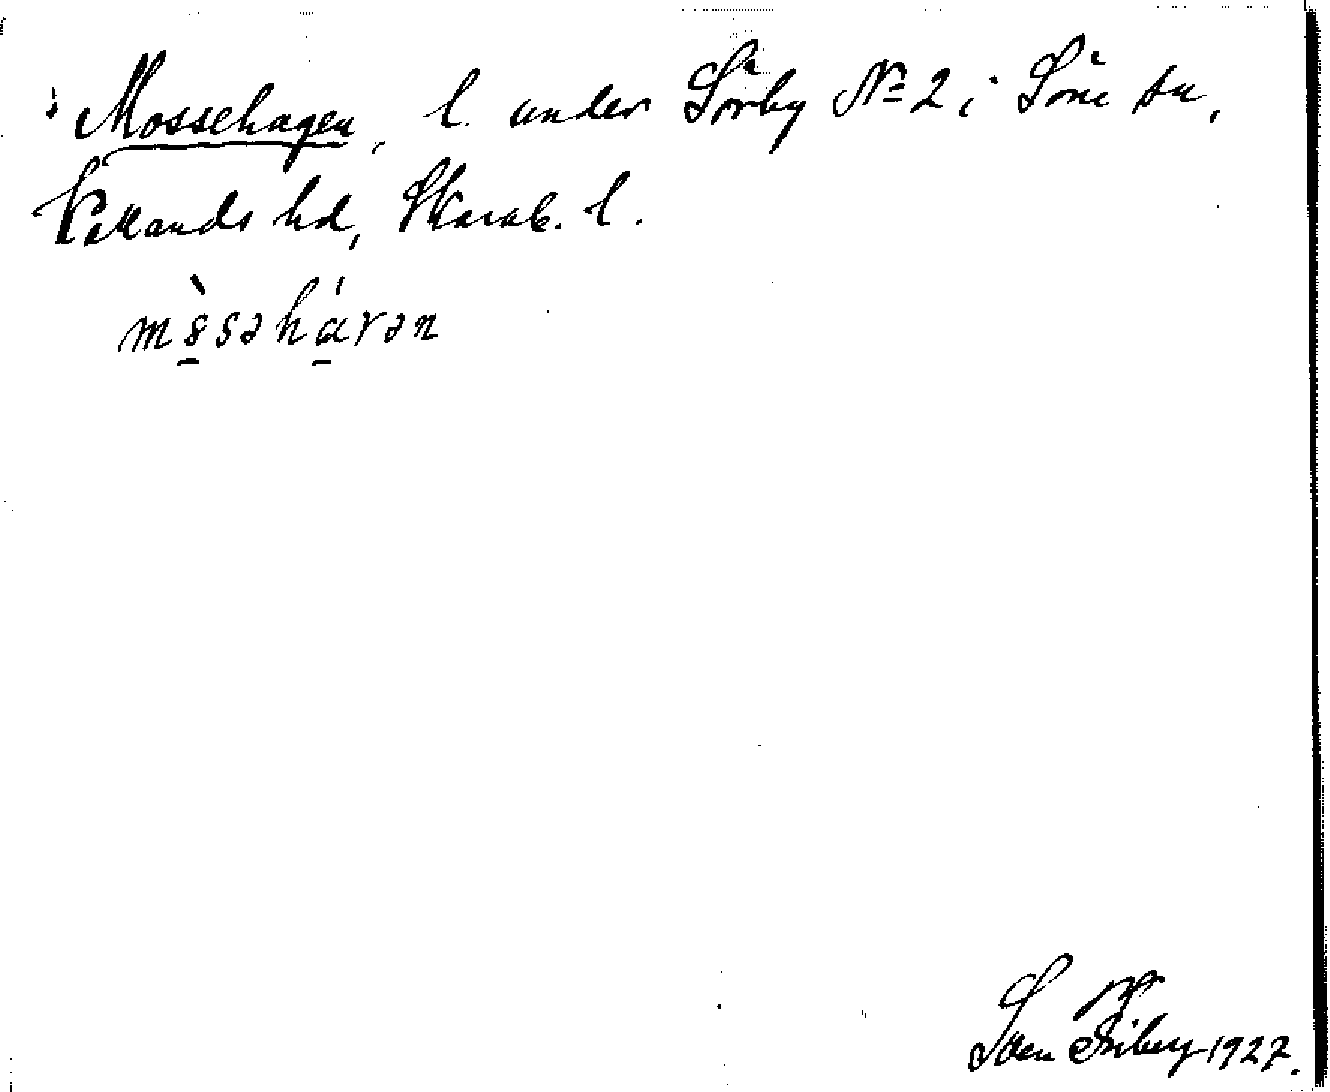 Mossehagen, l. under Sörby № 2 i Söne sn,
Kållands hd, Skarab. l.
mòsəhávən
Sven Friberg 1927.